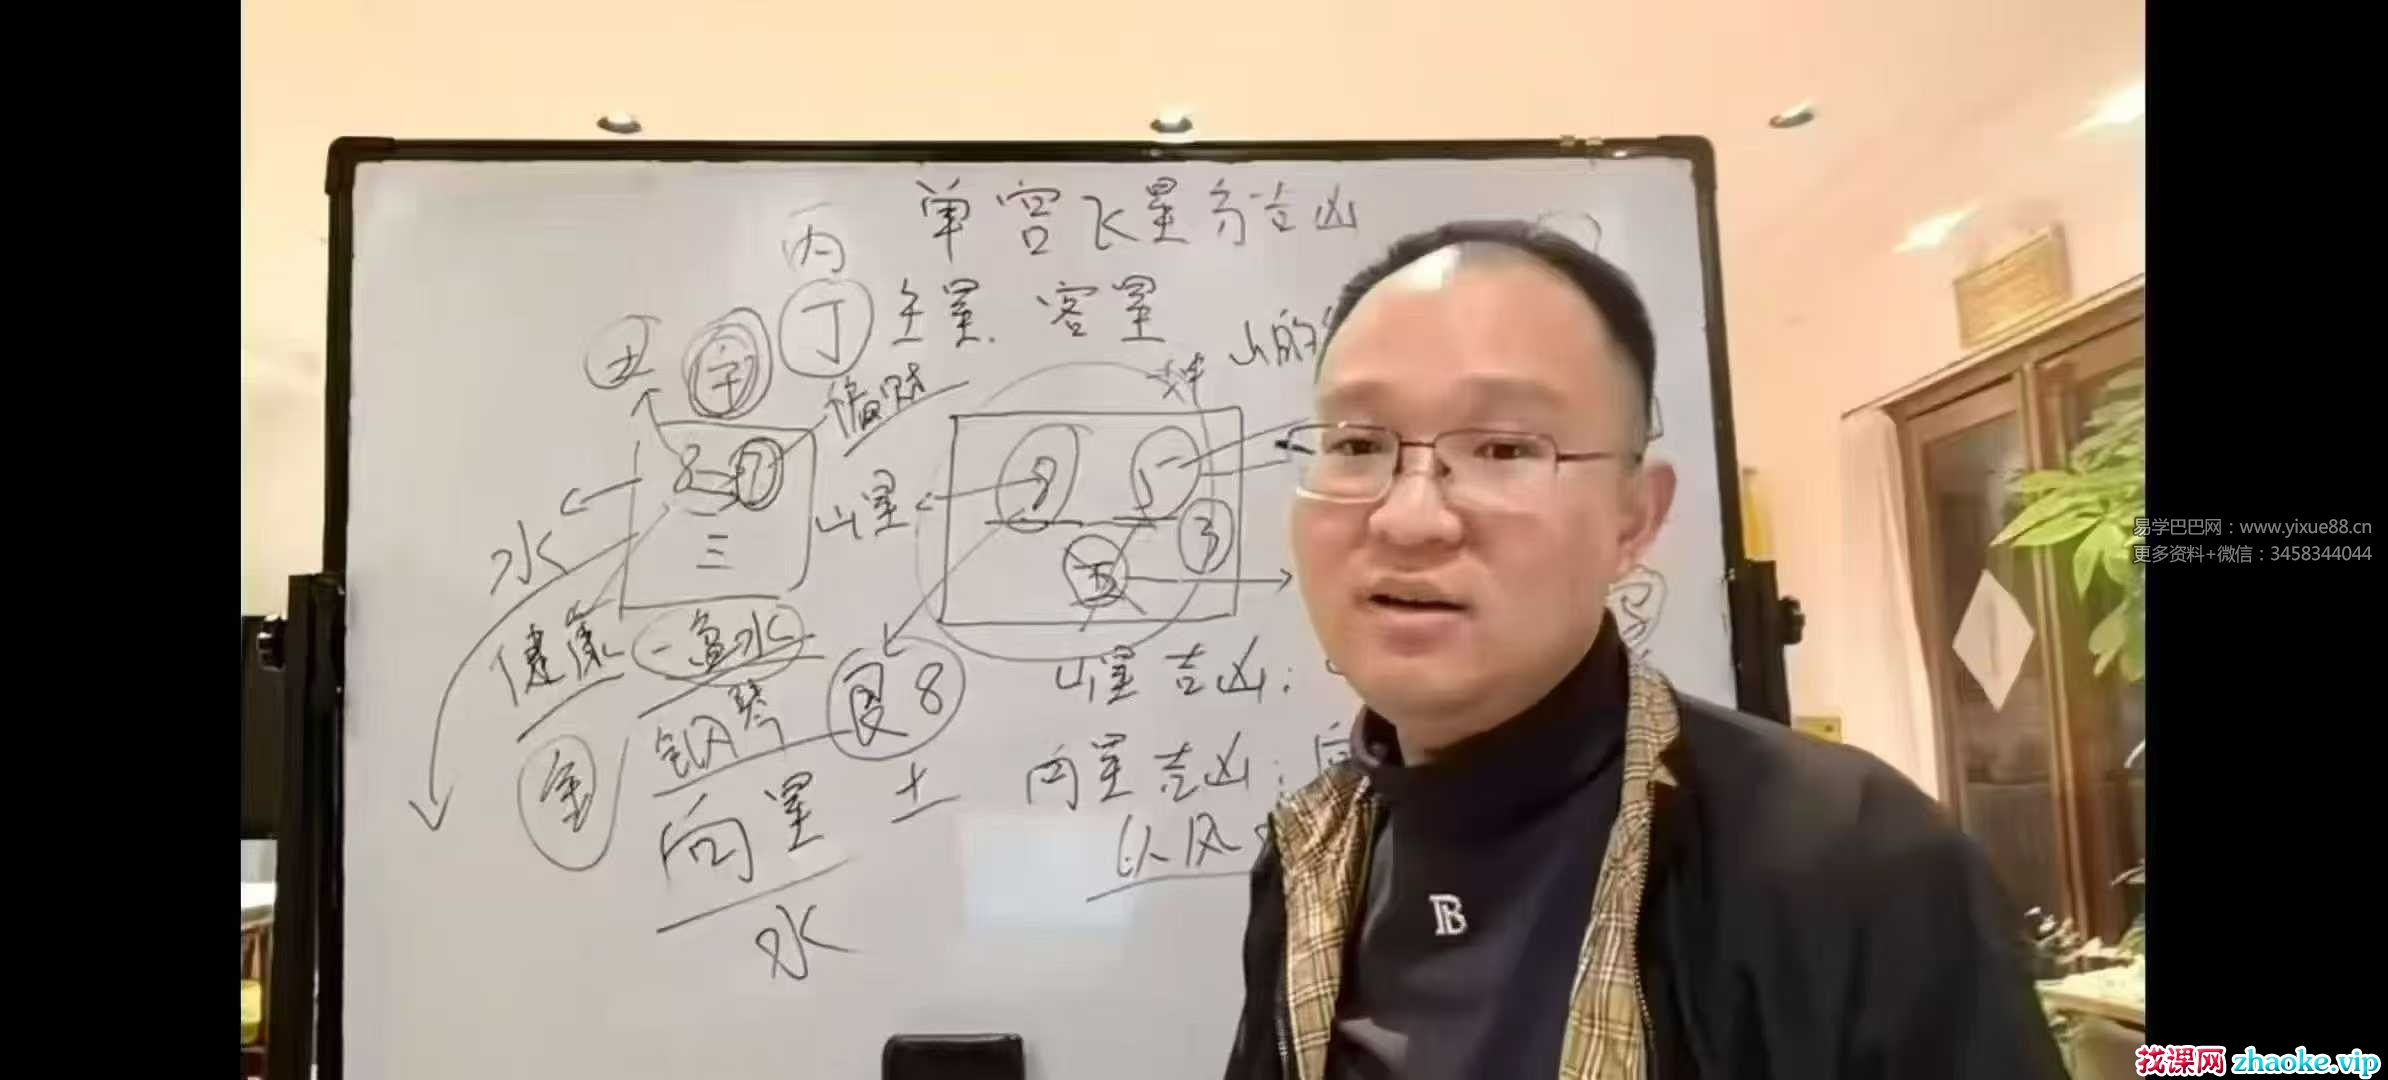 单宫飞星与吉凶
丙
丁 主星、客星
丑 字
山的
偏财
8 7
三
8 5
3
五
山星
水
健康
一盆水
艮 8
山星吉凶:
钢琴
金
向星
土
向星吉凶:向
以风
水
B
易学巴巴网:www.yixue88.cn
更多资料+微信:3458344044
找课网 zhaoke.vip